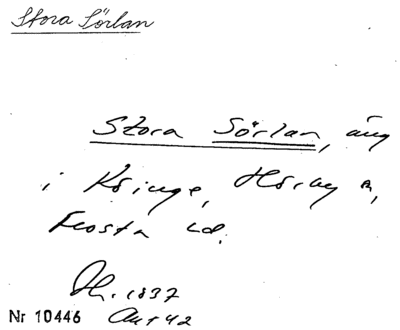 Stora Sörlan
Stora Sörlan, äng
i Köinge, Hörby sn,
Frosta hd.
1837
Nr 10446 Akt 42